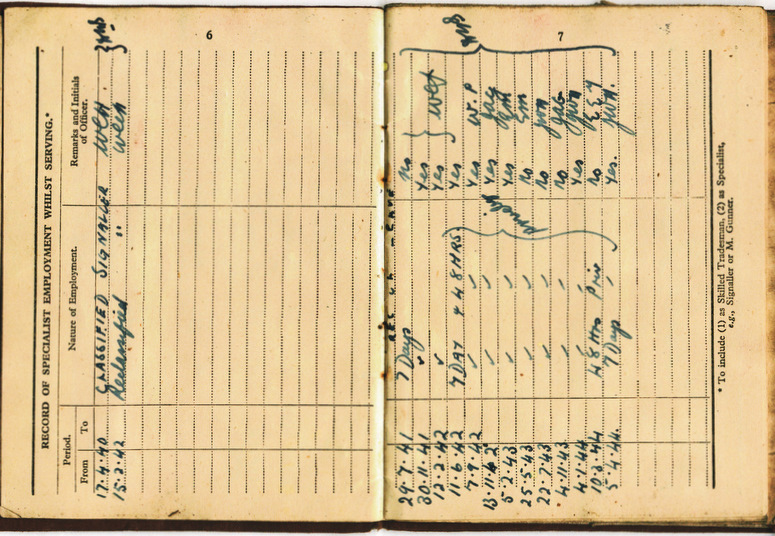 6
RECORD OF SPECIALIST EMPLOYMENT WHILST SERVING.*
Period. Nature of Employment. Remarks and Initials
of Officer.
From To
17.4.40 CLASSIFIED SIGNALLER
15.2.42 Reclassified "
7
29.7.41 7 Days no
30.11.41 yes
12.2.42 yes
11.6.42 7 DAY + 48 HRS. yes
7.9.42 yes W.P
13.11.42 yes
5.2.43 yes
25.5.43 no
22.7.43 no
4.11.43 no
4.1.44 yes
10.3.44 48 Hrs Priv no
5.4.44. 7 Days yes.
* To include (1) as Skilled Tradesman, (2) as Specialist,
e.g., Signaller or M. Gunner.